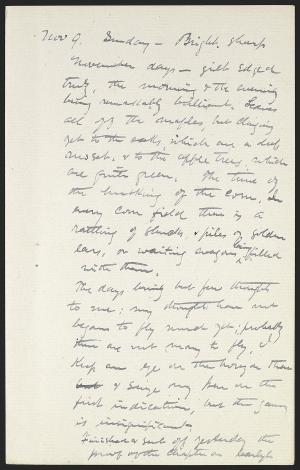 Nov 9. Sunday - Bright, sharp
November days - gilt edged
truly, the morning & the evening
being remarkably brilliant. Leaves
all off the maples, but clinging
yet to the oaks, which are a deep
russet, & to the apple trees, which
are quite green. The time of
the husking of the corn. In
every corn field there is a
rattling of blades, & piles of golden
ears, or waiting wagons being filled
with them.
The days bring but few thoughts
to me; my thoughts have not
begun to fly much yet; probably
there are not many to fly. I
keep an eye on the horizon than
& seize my pen on the
first indication, but the game
is insignificant.
Finished & sent off yesterday the
proof of the chapter on